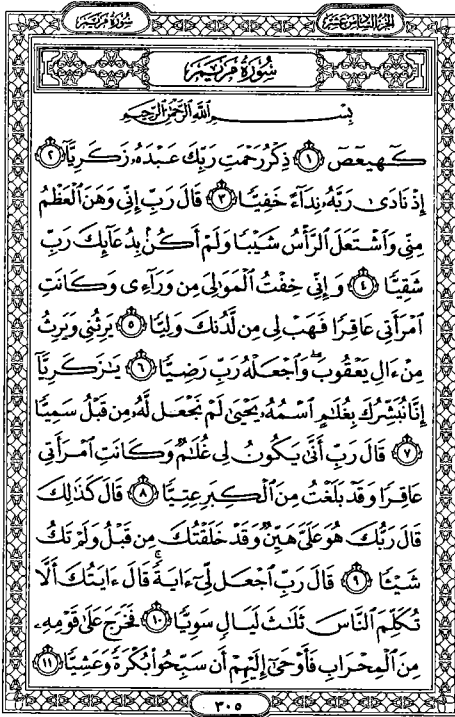 سُورَةُ مَرْيَمَ
الجزء السادس عشر
سُورَةُ مَرْيَمَ
بِسْمِ اللَّهِ الرَّحْمَٰنِ الرَّحِيمِ
كٓهيعٓصٓ ١ ذِكْرُ رَحْمَتِ رَبِّكَ عَبْدَهُۥ زَكَرِيَّآ ٢
إِذْ نَادَىٰ رَبَّهُۥ نِدَآءً خَفِيًّا ٣ قَالَ رَبِّ إِنِّي وَهَنَ ٱلْعَظْمُ
مِنِّي وَٱشْتَعَلَ ٱلرَّأْسُ شَيْبًا وَلَمْ أَكُنۢ بِدُعَآئِكَ رَبِّ
شَقِيًّا ٤ وَإِنِّي خِفْتُ ٱلْمَوَٰلِيَ مِن وَرَآءِي وَكَانَتِ
ٱمْرَأَتِي عَاقِرًا فَهَبْ لِي مِن لَّدُنكَ وَلِيًّا ٥ يَرِثُنِي وَيَرِثُ
مِنْ ءَالِ يَعْقُوبَۖ وَٱجْعَلْهُ رَبِّ رَضِيًّا ٦ يَٰزَكَرِيَّآ
إِنَّا نُبَشِّرُكَ بِغُلَٰمٍ ٱسْمُهُۥ يَحْيَىٰ لَمْ نَجْعَل لَّهُۥ مِن قَبْلُ سَمِيًّا
٧ قَالَ رَبِّ أَنَّىٰ يَكُونُ لِي غُلَٰمٌ وَكَانَتِ ٱمْرَأَتِي
عَاقِرًا وَقَدْ بَلَغْتُ مِنَ ٱلْكِبَرِ عِتِيًّا ٨ قَالَ كَذَٰلِكَ
قَالَ رَبُّكَ هُوَ عَلَيَّ هَيِّنٌ وَقَدْ خَلَقْتُكَ مِن قَبْلُ وَلَمْ تَكُ
شَيْـًٔا ٩ قَالَ رَبِّ ٱجْعَل لِّيٓ ءَايَةًۚ قَالَ ءَايَتُكَ أَلَّا
تُكَلِّمَ ٱلنَّاسَ ثَلَٰثَ لَيَالٍ سَوِيًّا ١٠ فَخَرَجَ عَلَىٰ قَوْمِهِۦ
مِنَ ٱلْمِحْرَابِ فَأَوْحَىٰٓ إِلَيْهِمْ أَن سَبِّحُوا۟ بُكْرَةً وَعَشِيًّا ١١
٣٠٥